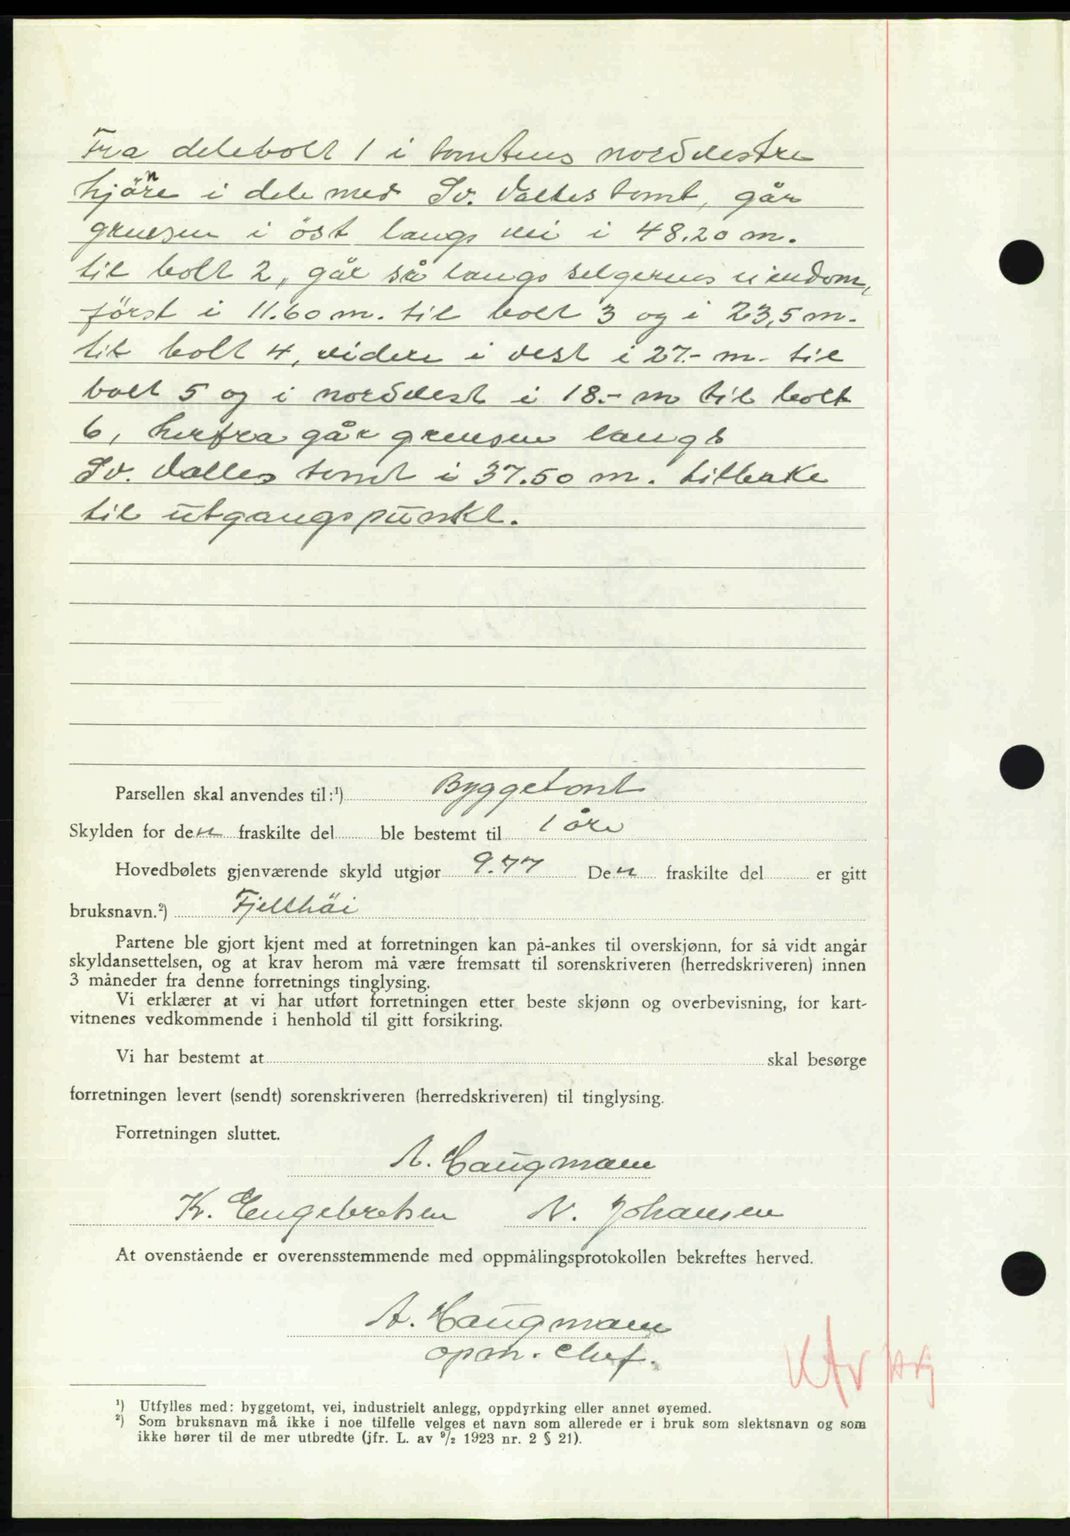 Fra delebolt 1 i tomtens nordvestre
hjörne i dele med Sv. Valles tomt, går
grensen i öst langs vei i 48.20 m.
til bolt 2, går så langs selgerens eiendom,
först i 11.60 m. til bolt 3 og i 23,5 m.
til bolt 4, videre i vest i 27.- m. til
bolt 5 og i nordvest i 18.- m til bolt
6, herfra går grensen langs
Sv. Valles tomt i 37.50 m. tilbake
til utgangspunkt.
Parsellen skal anvendes til:¹) Byggetomt
Skylden for den fraskilte del ble bestemt til 1 öre
Hovedbølets gjenværende skyld utgjør 9.77 Den fraskilte del er gitt
bruksnavn.²) Fjellhöi
Partene ble gjort kjent med at forretningen kan på-ankes til overskjønn, for så vidt angår
skyldansettelsen, og at krav herom må være fremsatt til sorenskriveren (herredskriveren) innen
3 måneder fra denne forretnings tinglysing.
Vi erklærer at vi har utført forretningen etter beste skjønn og overbevisning, for kart-
vitnenes vedkommende i henhold til gitt forsikring.
Vi har bestemt at skal besørge
forretningen levert (sendt) sorenskriveren (herredskriveren) til tinglysing.
Forretningen sluttet.
A. Haugmann
K. Engebretsen N. Johansen
At ovenstående er overensstemmende med oppmålingsprotokollen bekreftes herved.
A. Haugmann
opm. chef.
¹) Utfylles med: byggetomt, vei, industrielt anlegg, oppdyrking eller annet øyemed.
²) Som bruksnavn må ikke i noe tilfelle velges et navn som allerede er i bruk som slektsnavn og som
ikke hører til de mer utbredte (jfr. L. av ⁹/₂ 1923 nr. 2 § 21).